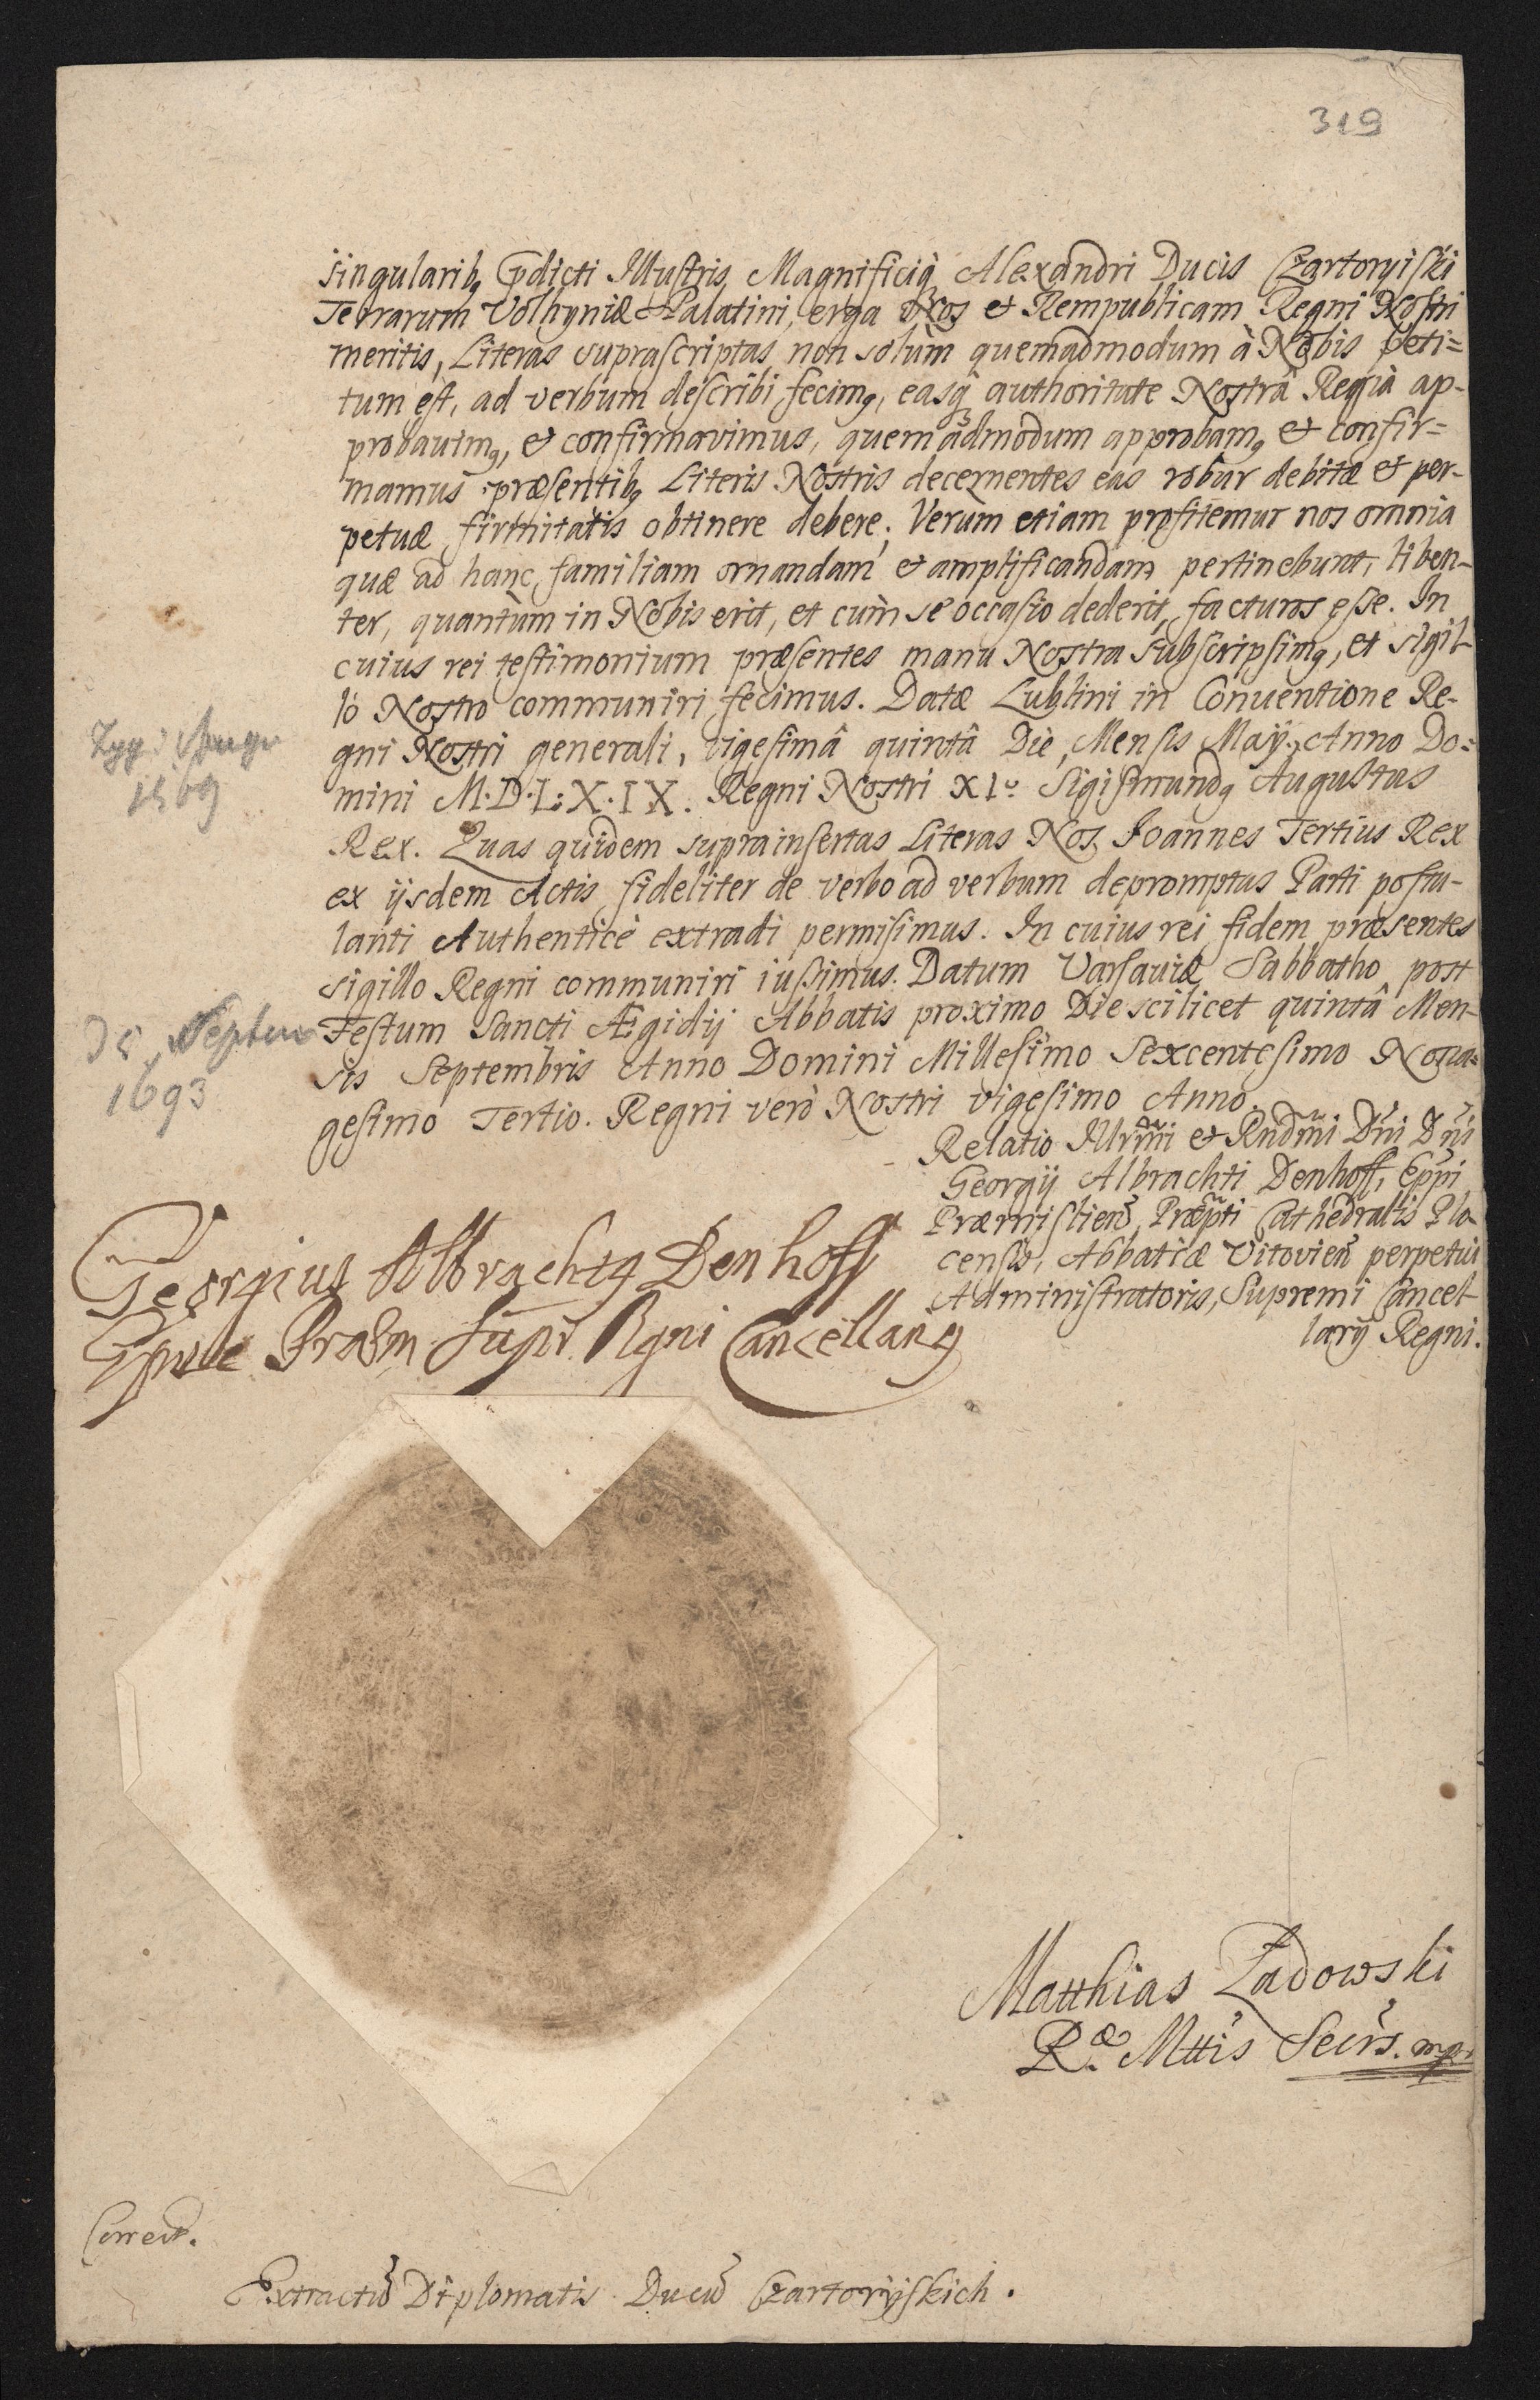 319
singularibꝫ p̄dicti Illustris Magnificiqꝫ Alexandri Ducis Czartoryiski
Terrarum Volhyniæ Palatini, erga Nos et Rempublicam Regni Nostri
meritis, Literas suprascriptas non solùm quemadmodum à Nobis peti=
tum est, ad verbum describi fecimꝯ, easqꝫ authoritate Nostrâ Regià ap-
probauimꝯ, et confirmavimus, quemadmodum approbamꝯ et confir=
mamus præsentibꝫ Literis Nostris decernentes eas robur debitæ et per-
petuæ firmitatis obtinere debere; Verùm etiam profitemur nos omnia
quæ ad hanc familiam ornandam et amplificandam pertinebunt, liben-
ter, quantùm in Nobis erit, et cum se occasio dederit, facturos esse. In
cuius rei testimonium præsentes manu Nostra subscripsimꝯ, et sigil-
lo Nostro communiri fecimus. Datæ Lublini in Conuentione Re-
gni Nostri generali, vigesimâ quintâ Die, Mensis Maÿ, Anno Do=
mini M·D·L·X·IX. Regni Nostri XLo Sigismundꝯ Augustus
Rex. Quas quidem suprainsertas Literas Nos Joannes Tertius Rex
ex ijsdem Actis fideliter de verbo ad verbum depromptas Parti postu-
lanti Authenticè extradi permisimus. In cuius rei fidem præsentes
sigillo Regni communiri iussimus. Datum Varsaviæ Sabbatho post
Festum Sancti Ægidij Abbatis proximo Die scilicet quintâ Men-
sis Septembris Anno Domini Millesimo Sexcentesimo Nona-
gesimo Tertio. Regni verò Nostri vigesimo Anno.
Zyg: Augu
1569
d 5 Septem
1693
Relatio Illrmi et Rndmi Dni Dni
Georgij Albrachti Denhoff, Eppi
Præmislien, Præpti Cathedralis Plo-
censis, Abbatiæ Vitovien perpetui
Administratoris, Supremi Cancel-
larij Regni.
Georgius Albrachtꝯ Denhoff
Epus Præm Supr. Rgni Cancellariꝯ
Matthias Ladowski
Ræ Mttis Secrs. mp
Correct.
Extractũ Diplomatis Ducũ Czartoryiskich.